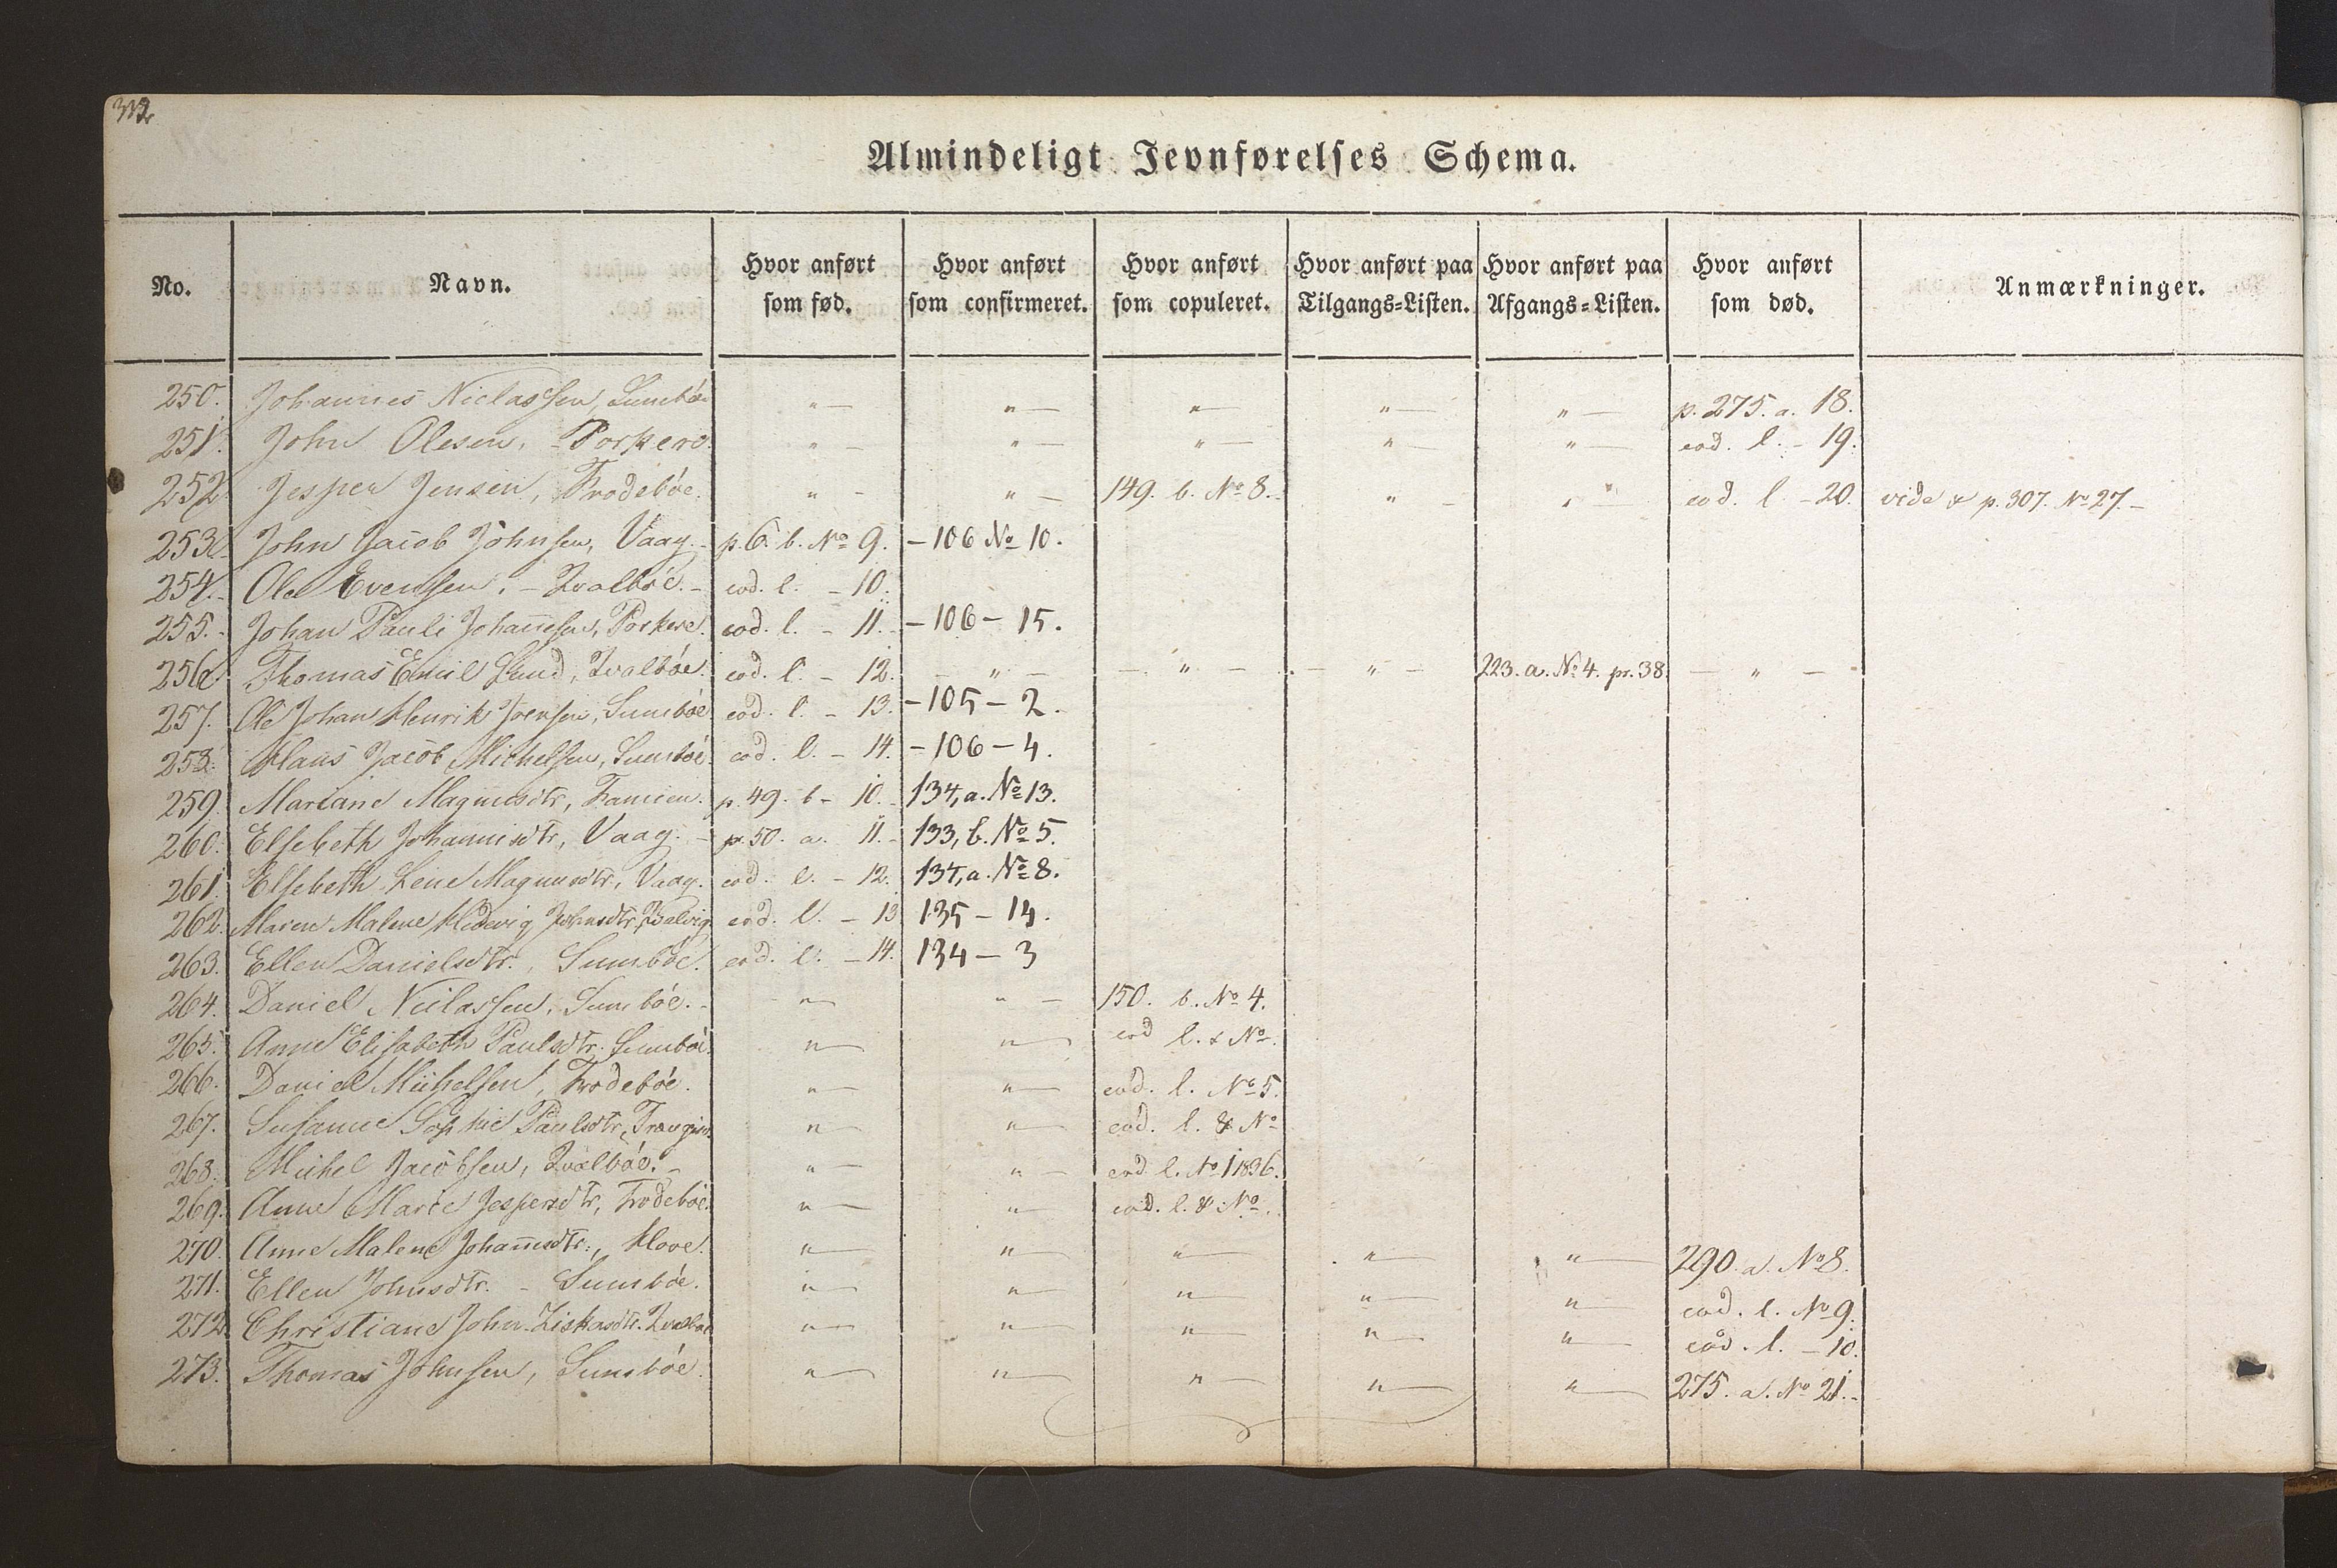 Almindeligt Jevnførelses Schema.
No. Navn. Hvor anført som fød. Hvor anført som confirmeret. Hvor anført som copuleret. Hvor anført paa Tilgangs=Listen. Hvor anført paa Afgangs=Listen. Hvor anført som død. Anmærkninger.
250. Johannes Niclassen, Sumbøe " — " — " — " — " — p. 275. a. 18.
251. John Olesen, - Porkere. " — " — " — " — " — eod. l. - 19.
252. Jesper Jensen, Frodebøe. " - " — 149. b. No 8. - " - " — eod. l. - 20. vide & p. 307. No 27. -
253. John Jacob Johnsen, Vaag. - p. 6. b. No 9. - 106 No 10.
254. - Ole Evensen, - Qvalbøe. - eod. l. - 10.
255. - Johan Pauli Johannesen, Porkere. eod. l. - 11. - 106 - 15.
256. Thomas Emil Lund, Qvalbøe. eod. l. - 12. — " — — " — — " — 223. a. No 4. pr. 38. — " —
257. Ole Johan Henrik Joensen, Sumbøe. eod. l. - 13. - 105 - 2.
258. Hans Jacob Michelsen, Sumbøe. eod. l. - 14. - 106 - 4.
259. Mariane Magnusdtr, Famien. p. 49. b - 10. - 134, a. No 13.
260. Elsebeth Johannisdtr, Vaag. - p. 50. a. 11. - 133, b. No 5.
261. Elsebeth Lene Magnusdtr, Vaag. eod. l. - 12. 134, a. No 8.
262. Maren Malene Hedevig Johnsdtr, eod. l. - 13 135 - 14.
263. Ellen Danielsdtr., Sumbøe. eod. l. - 14. 134 - 3
264. Daniel Niclassen, Sumbøe. - " — " — 150. b. No 4.
265. Anne Elisabeth Paulsdtr. Sumbøe. " — " — eod l. & No.
266. Daniel Michelsen, Frodebøe. " — " — eod. l. No 5.
267. Susanne Sophie Paulsdtr, " — " — eod. l. & No
268. Michel Jacobsen, Qvalbøe. - " — " — eod. l. No 1 1836.
269. Anne Marie Jespersdtr, Frodebøe. " — " — eod. l. & No.
270. Anne Malene Johannesdtr:, Hove. " — " — " — " — " — 290. a. No 8.
271. Ellen Johnsdtr. - Sumbøe. " — " — " — " — " — eod. l. No 9.
272. Christiane John-Ziskasdtr. Qvalbøe " — " — " — " — " — eod. l. - 10.
273. Thomas Johnsen, Sumbøe. " — " — " — " — " — 275. a. No 21. -